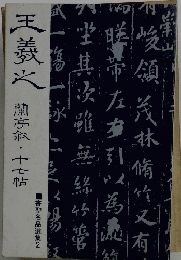 有峻領茂林脩竹
暎帶左右引以為
坐其次雖無絲竹管
觴一詠
王羲之
蘭亭叙・十七帖